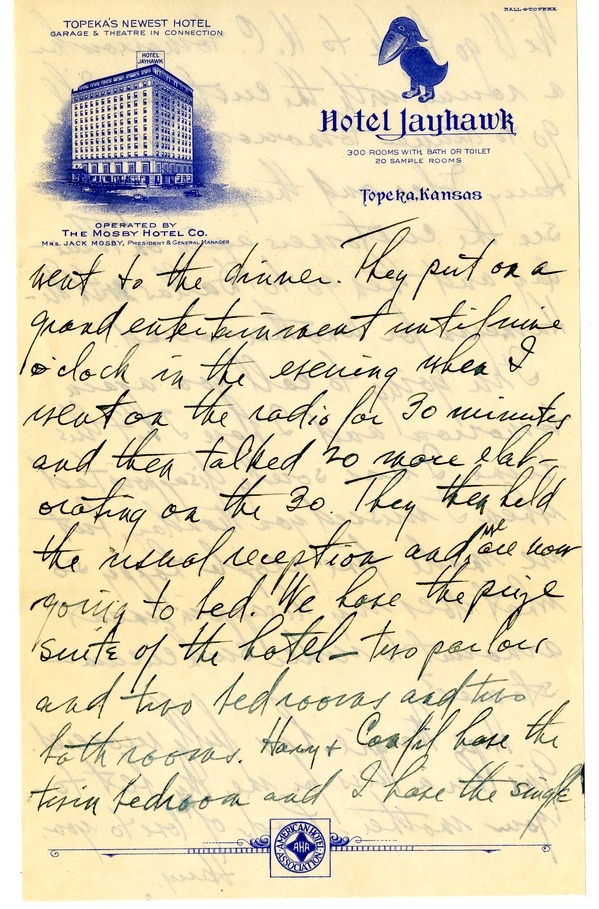 HALL TOPEKA
TOPEKA'S NEWEST HOTEL
GARAGE & THEATRE IN CONNECTION
HOTEL
JAYHAWK
Hotel Jayhawk
300 ROOMS WITH BATH OR TOILET
20 SAMPLE ROOMS
Topeka, Kansas
OPERATED BY
THE MOSBY HOTEL CO.
MRS. JACK MOSBY, PRESIDENT & GENERAL MANAGER
went to the dinner. They put on a
grand entertainment until nine
o'clock in the evening when I
went on the radio for 30 minutes
and then talked 20 more elab-
orating on the 30. They then held
the usual reception and we are now
going to bed. We have the prize
suite of the hotel – two parlors
and two bedrooms and two
bath rooms. Harry & Canfil have the
twin bedroom and I have the single
AMERICAN HOTEL
AHA
ASSOCIATION